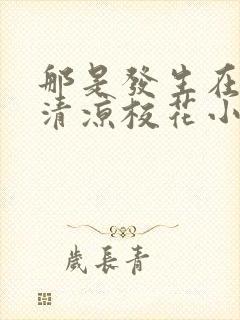 那是發生在
清涼校花小
歲長青